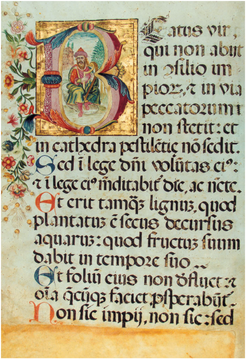 Beatus vir,
qui non abiit
in ɔsilio im
pioꝝ, et in via
peccatorum
non stetit: et
in cathedra pestiletie nō sedit.
Sed ī lege dnī volūtas ei9:
et ī lege ei9 mditabit die, ac ncte.
Et erit tamqʒ lignuʒ, quod
plantatuʒ ē secus decursus
aquarum: quod fructuʒ suum
dabit in tempore suo
Et foliuʒ eius non dfluet: et
oīa qcūqʒ faciet psperabūt.
Non sic impij, non sic: sed